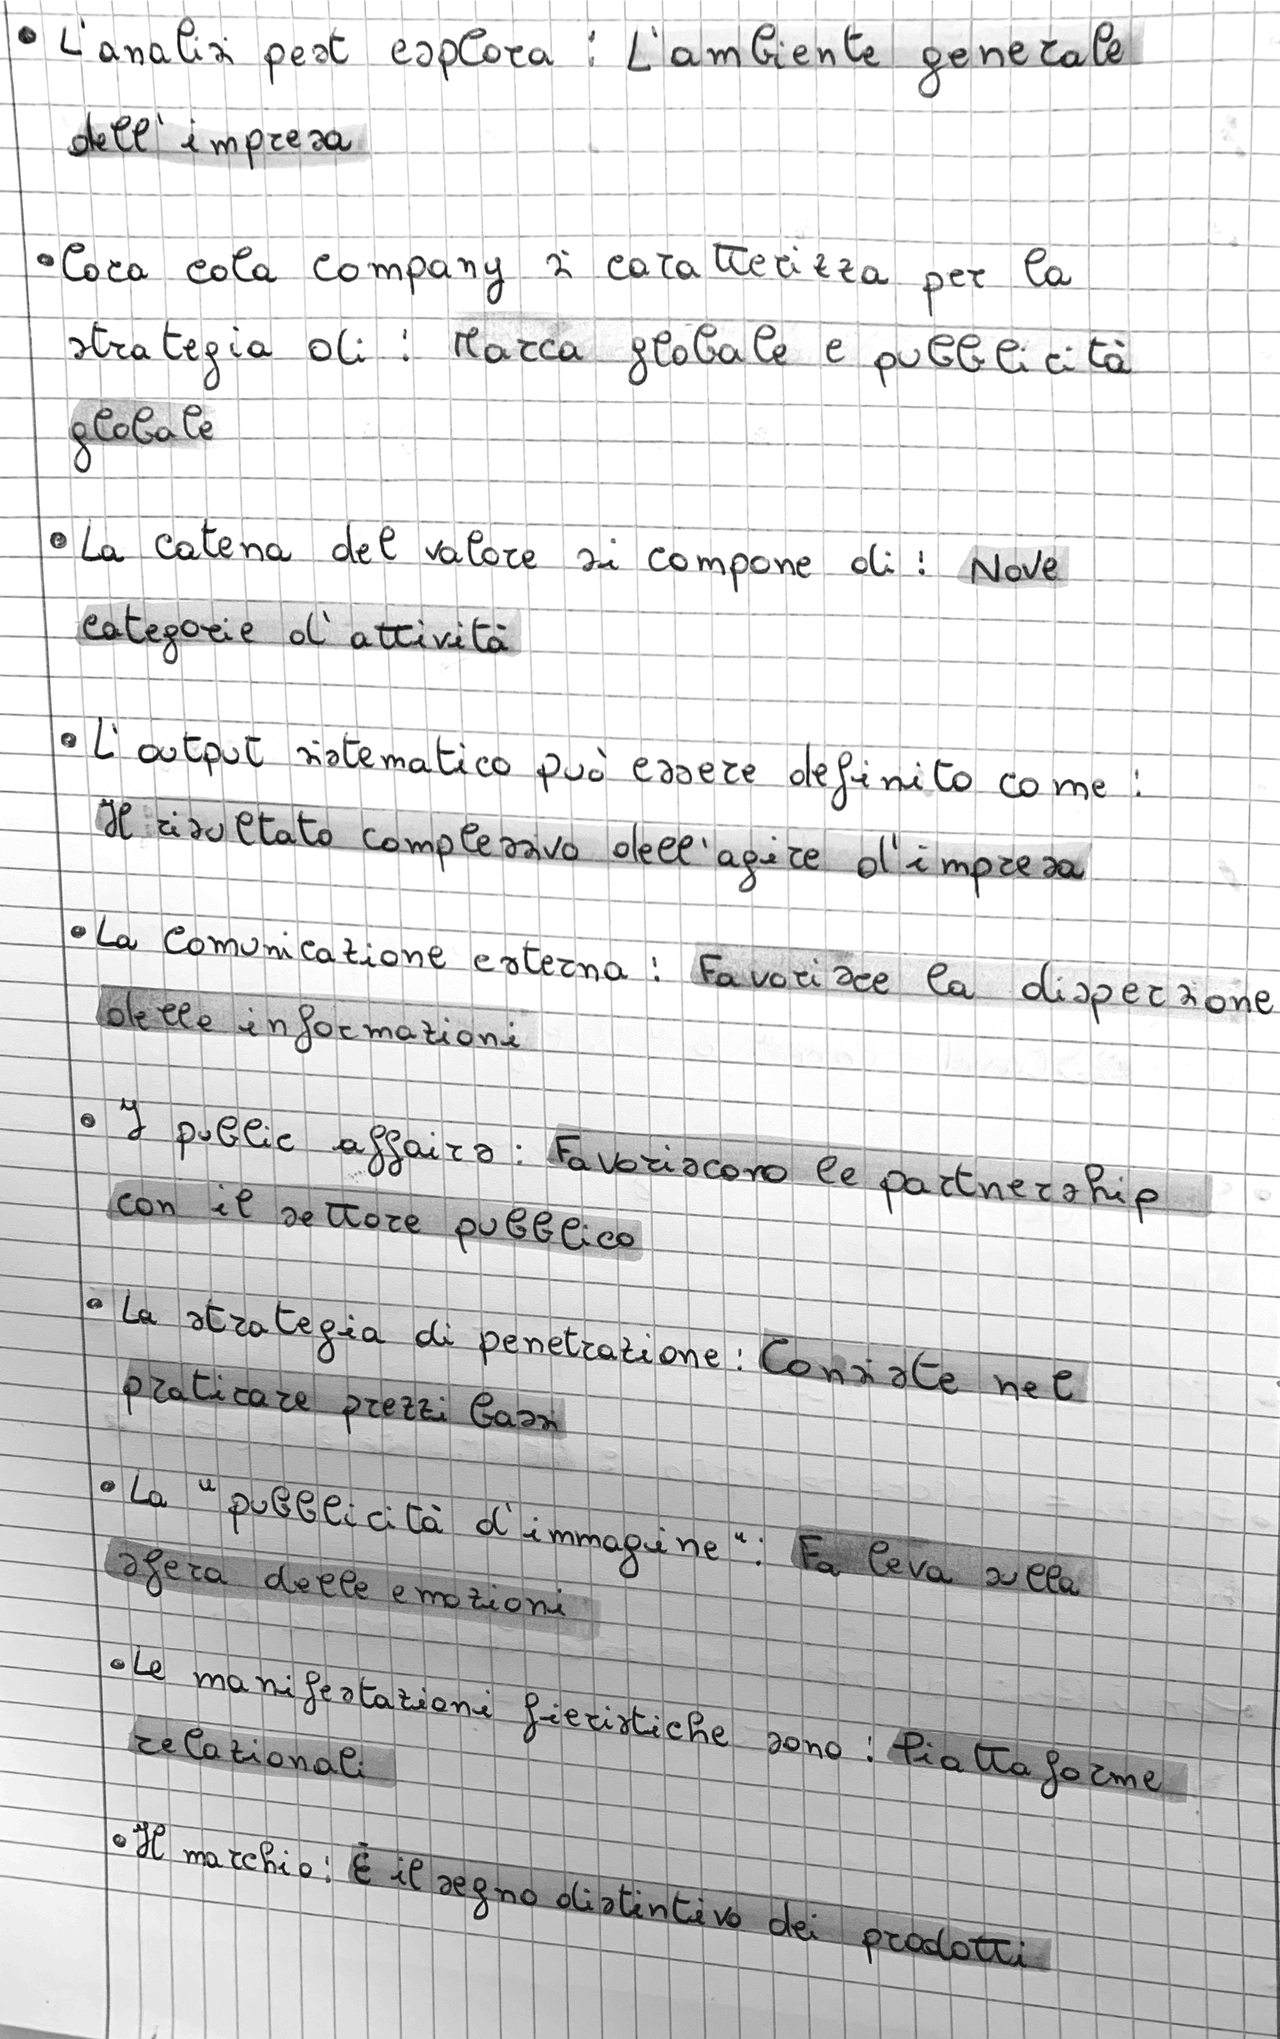 • L'analisi pest esplora : L'ambiente generale
dell'impresa
• Coca cola company si caratterizza per la
strategia di : Marca globale e pubblicità
globale
• La catena del valore si compone di : Nove
categorie d'attività
• L'output sistematico può essere definito come :
Il risultato complessivo dell'agire d'impresa
• La comunicazione esterna : Favorisce la dispersione
delle informazioni
• I public affairs : Favoriscono le partnership
con il settore pubblico
• La strategia di penetrazione : Consiste nel
praticare prezzi bassi
• La "pubblicità d'immagine" : Fa leva sulla
sfera delle emozioni
• Le manifestazioni fieristiche sono : Piattaforme
relazionali
• Il marchio : È il segno distintivo dei prodotti